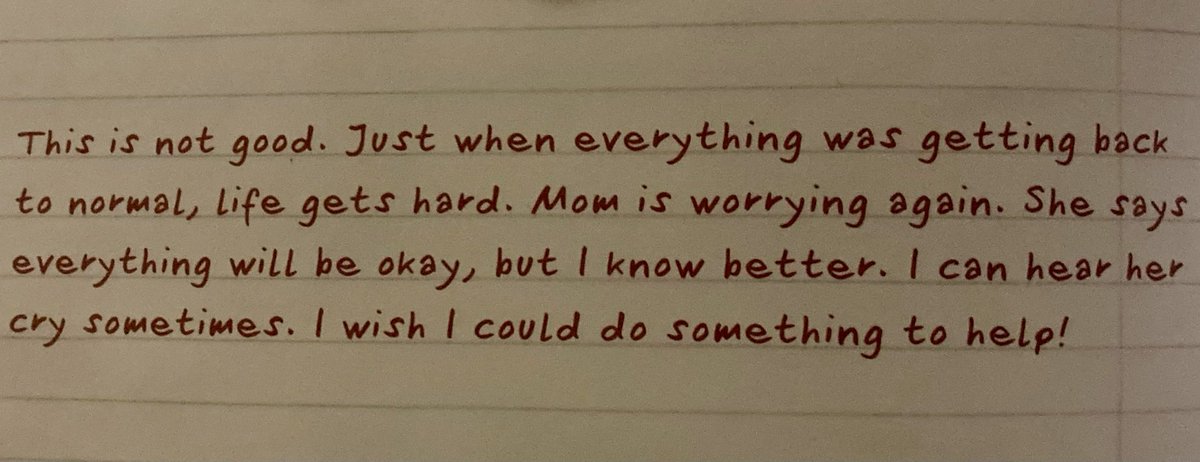 This is not good. Just when everything was getting back
to normal, life gets hard. Mom is worrying again. She says
everything will be okay, but I know better. I can hear her
cry sometimes. I wish I could do something to help!